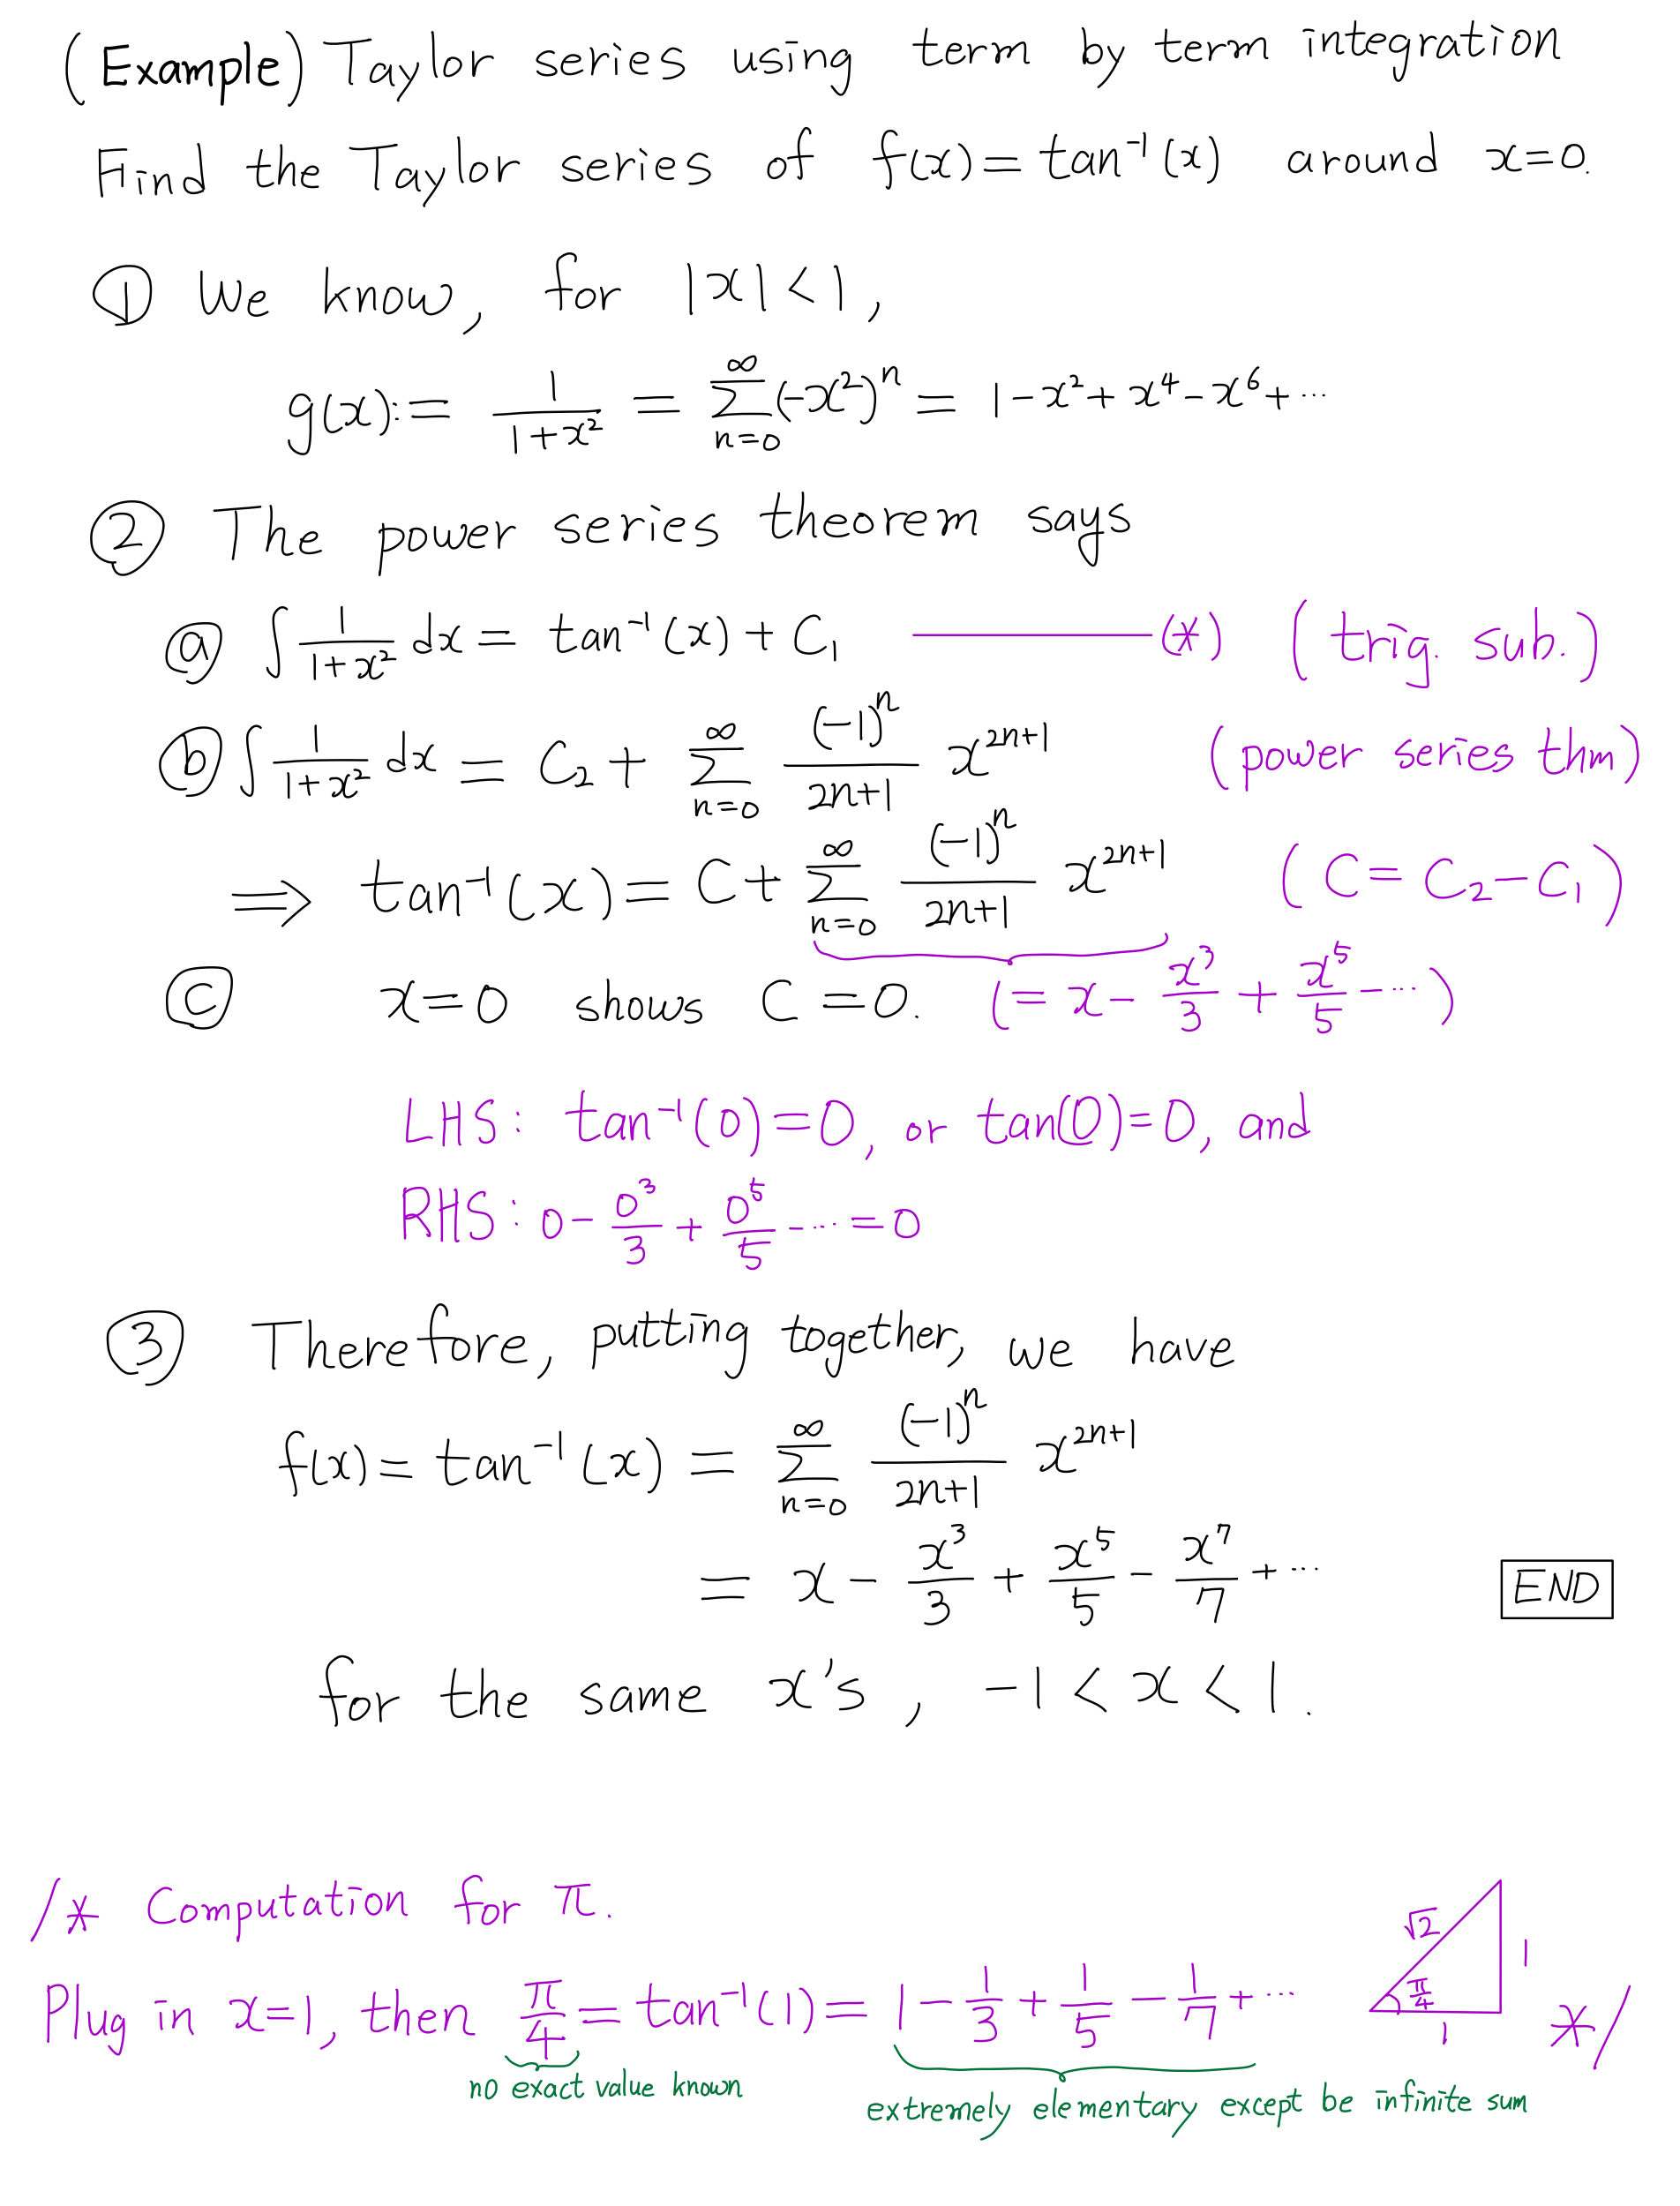 (Example) Taylor series using term by term integration
Find the Taylor series of f(x) = tan⁻¹(x) around x=0.
① We know, for |x| < 1,
g(x) := 1/(1+x²) = ∑_{n=0}^{∞} (-x²)ⁿ = 1 - x² + x⁴ - x⁶ + ···
② The power series theorem says
ⓐ ∫ 1/(1+x²) dx = tan⁻¹(x) + C₁ ——— (*) (trig. sub.)
ⓑ ∫ 1/(1+x²) dx = C₂ + ∑_{n=0}^{∞} (-1)ⁿ/(2n+1) x^{2n+1} (power series thm)
⟹ tan⁻¹(x) = C + ∑_{n=0}^{∞} (-1)ⁿ/(2n+1) x^{2n+1} (C = C₂ - C₁)
ⓒ x=0 shows C=0. (= x - x³/3 + x⁵/5 - ···)
LHS: tan⁻¹(0)=0, or tan(0)=0, and
RHS: 0 - 0³/3 + 0⁵/5 - ··· = 0
③ Therefore, putting together, we have
f(x) = tan⁻¹(x) = ∑_{n=0}^{∞} (-1)ⁿ/(2n+1) x^{2n+1}
= x - x³/3 + x⁵/5 - x⁷/7 + ···
END
for the same x's, -1 < x < 1.
/* Computation for π.
Plug in x=1, then π/4 = tan⁻¹(1) = 1 - 1/3 + 1/5 - 1/7 + ··· √2 1 π/4 1 */
no exact value known
extremely elementary except be infinite sum